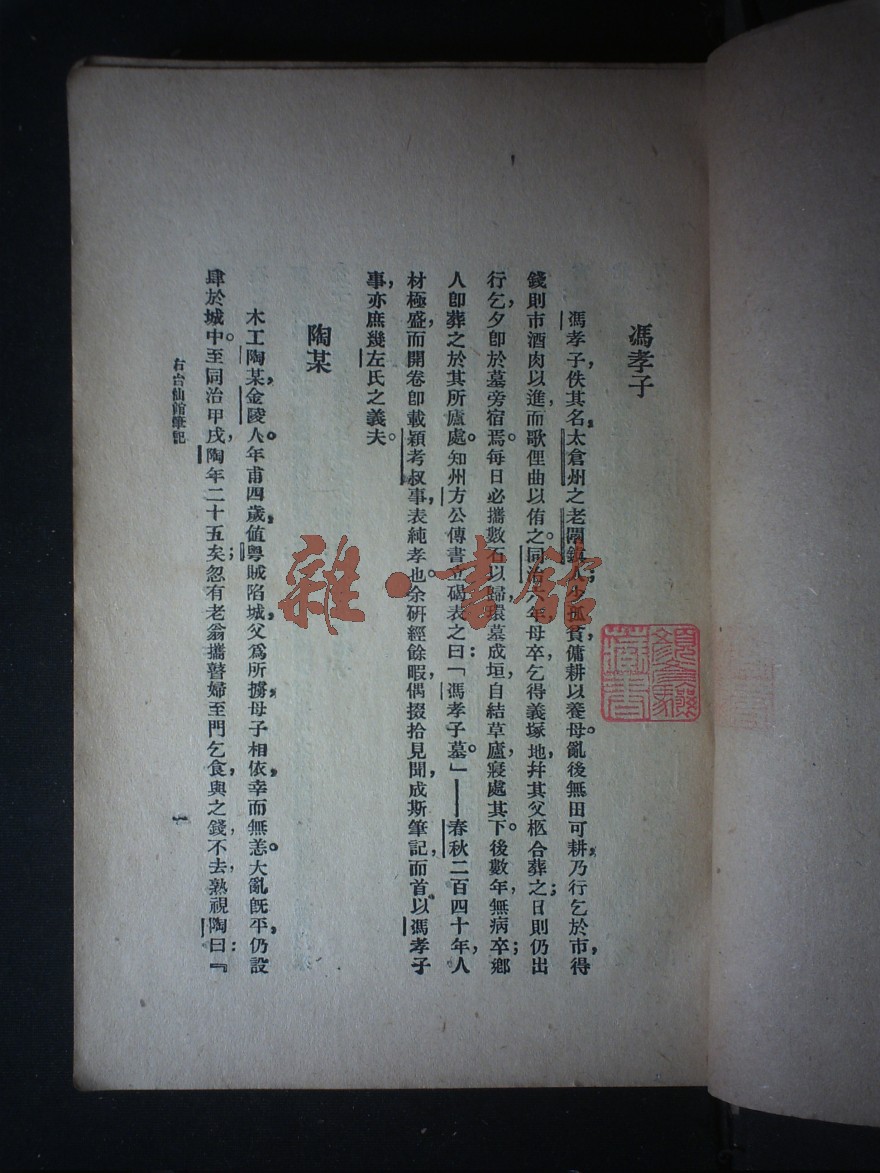 馮孝子
馮孝子，佚其名，太倉州之老閘鎮人；少孤貧，傭耕以養母。亂後無田可耕，乃行乞於市，得
錢則市酒肉以進，而歌俚曲以侑之。同治八年母卒，乞得義塚地，幷其父柩合葬之；日則仍出
行乞，夕卽於墓旁宿焉。每日必攜數石以歸，環墓成垣，自結草廬，寢處其下。後數年，無病卒；鄉
人卽葬之於其所廬處。知州方公傳書立碣表之曰：「馮孝子墓。」——春秋二百四十年，人
材極盛，而開卷卽載穎考叔事，表純孝也。余硏經餘暇，偶掇拾見聞，成斯筆記，而首以馮孝子
事，亦庶幾左氏之義夫。
陶某
木工陶某，金陵人。年甫四歲，值粵賊陷城，父爲所擄，母子相依，幸而無恙。大亂旣平，仍設
肆於城中。至同治甲戌，陶年二十五矣；忽有老翁攜瞽婦至門乞食，與之錢，不去，熟視陶曰：『
右台仙館筆記
一
雜·書館
藏書